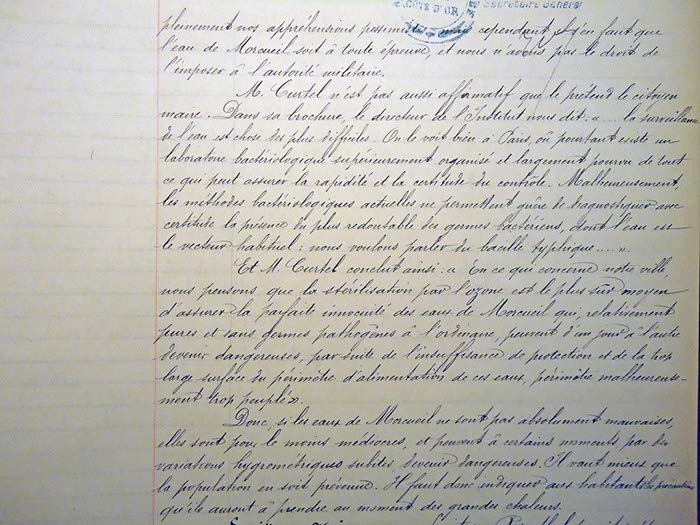 CÔTE D'OR
Secrétaire Général
pleinement nos appréhensions pessimistes mais cependant il s'en faut que
l'eau de Morcueil soit à toute épreuve, et nous n'avons pas le droit de
l'imposer à l'autorité militaire.
M. Curtel n'est pas aussi affirmatif que le prétend le citoyen
maire. Dans sa brochure, le directeur de l'Institut nous dit: « .... la surveillance
de l'eau est chose des plus difficiles. On le voit bien à Paris, où pourtant existe un
laboratoire bactériologique supérieurement organisé et largement pourvu de tout
ce qui peut assurer la rapidité et la certitude du contrôle. Malheureusement,
les méthodes bactériologiques actuelles ne permettent guère de diagnostiquer avec
certitude la présence du plus redoutable des germes bactériens, dont l'eau est
le vecteur habituel: nous voulons parler du bacille typhique..... ».
Et M. Curtel conclut ainsi: « En ce qui concerne notre ville
nous pensons que la stérilisation par l'ozone est le plus sûr moyen
d'assurer la parfaite innocuité des eaux de Morcueil qui, relativement
pures et sans germes pathogènes à l'ordinaire, peuvent d'un jour à l'autre
devenir dangereuses, par suite de l'insuffisance de protection et de la trop
large surface du périmètre d'alimentation de ces eaux, périmètre malheureuse-
ment trop peuplé».
Donc, si les eaux de Morcueil ne sont pas absolument mauvaises,
elles sont pour le moins médiocres, et peuvent à certains moments par des
variations hygrométriques subites, devenir dangereuses. Il vaut mieux que
la population en soit prévenue. Il faut donc indiquer aux habitants les précautions
qu'ils auront à prendre au moment des grandes chaleurs.